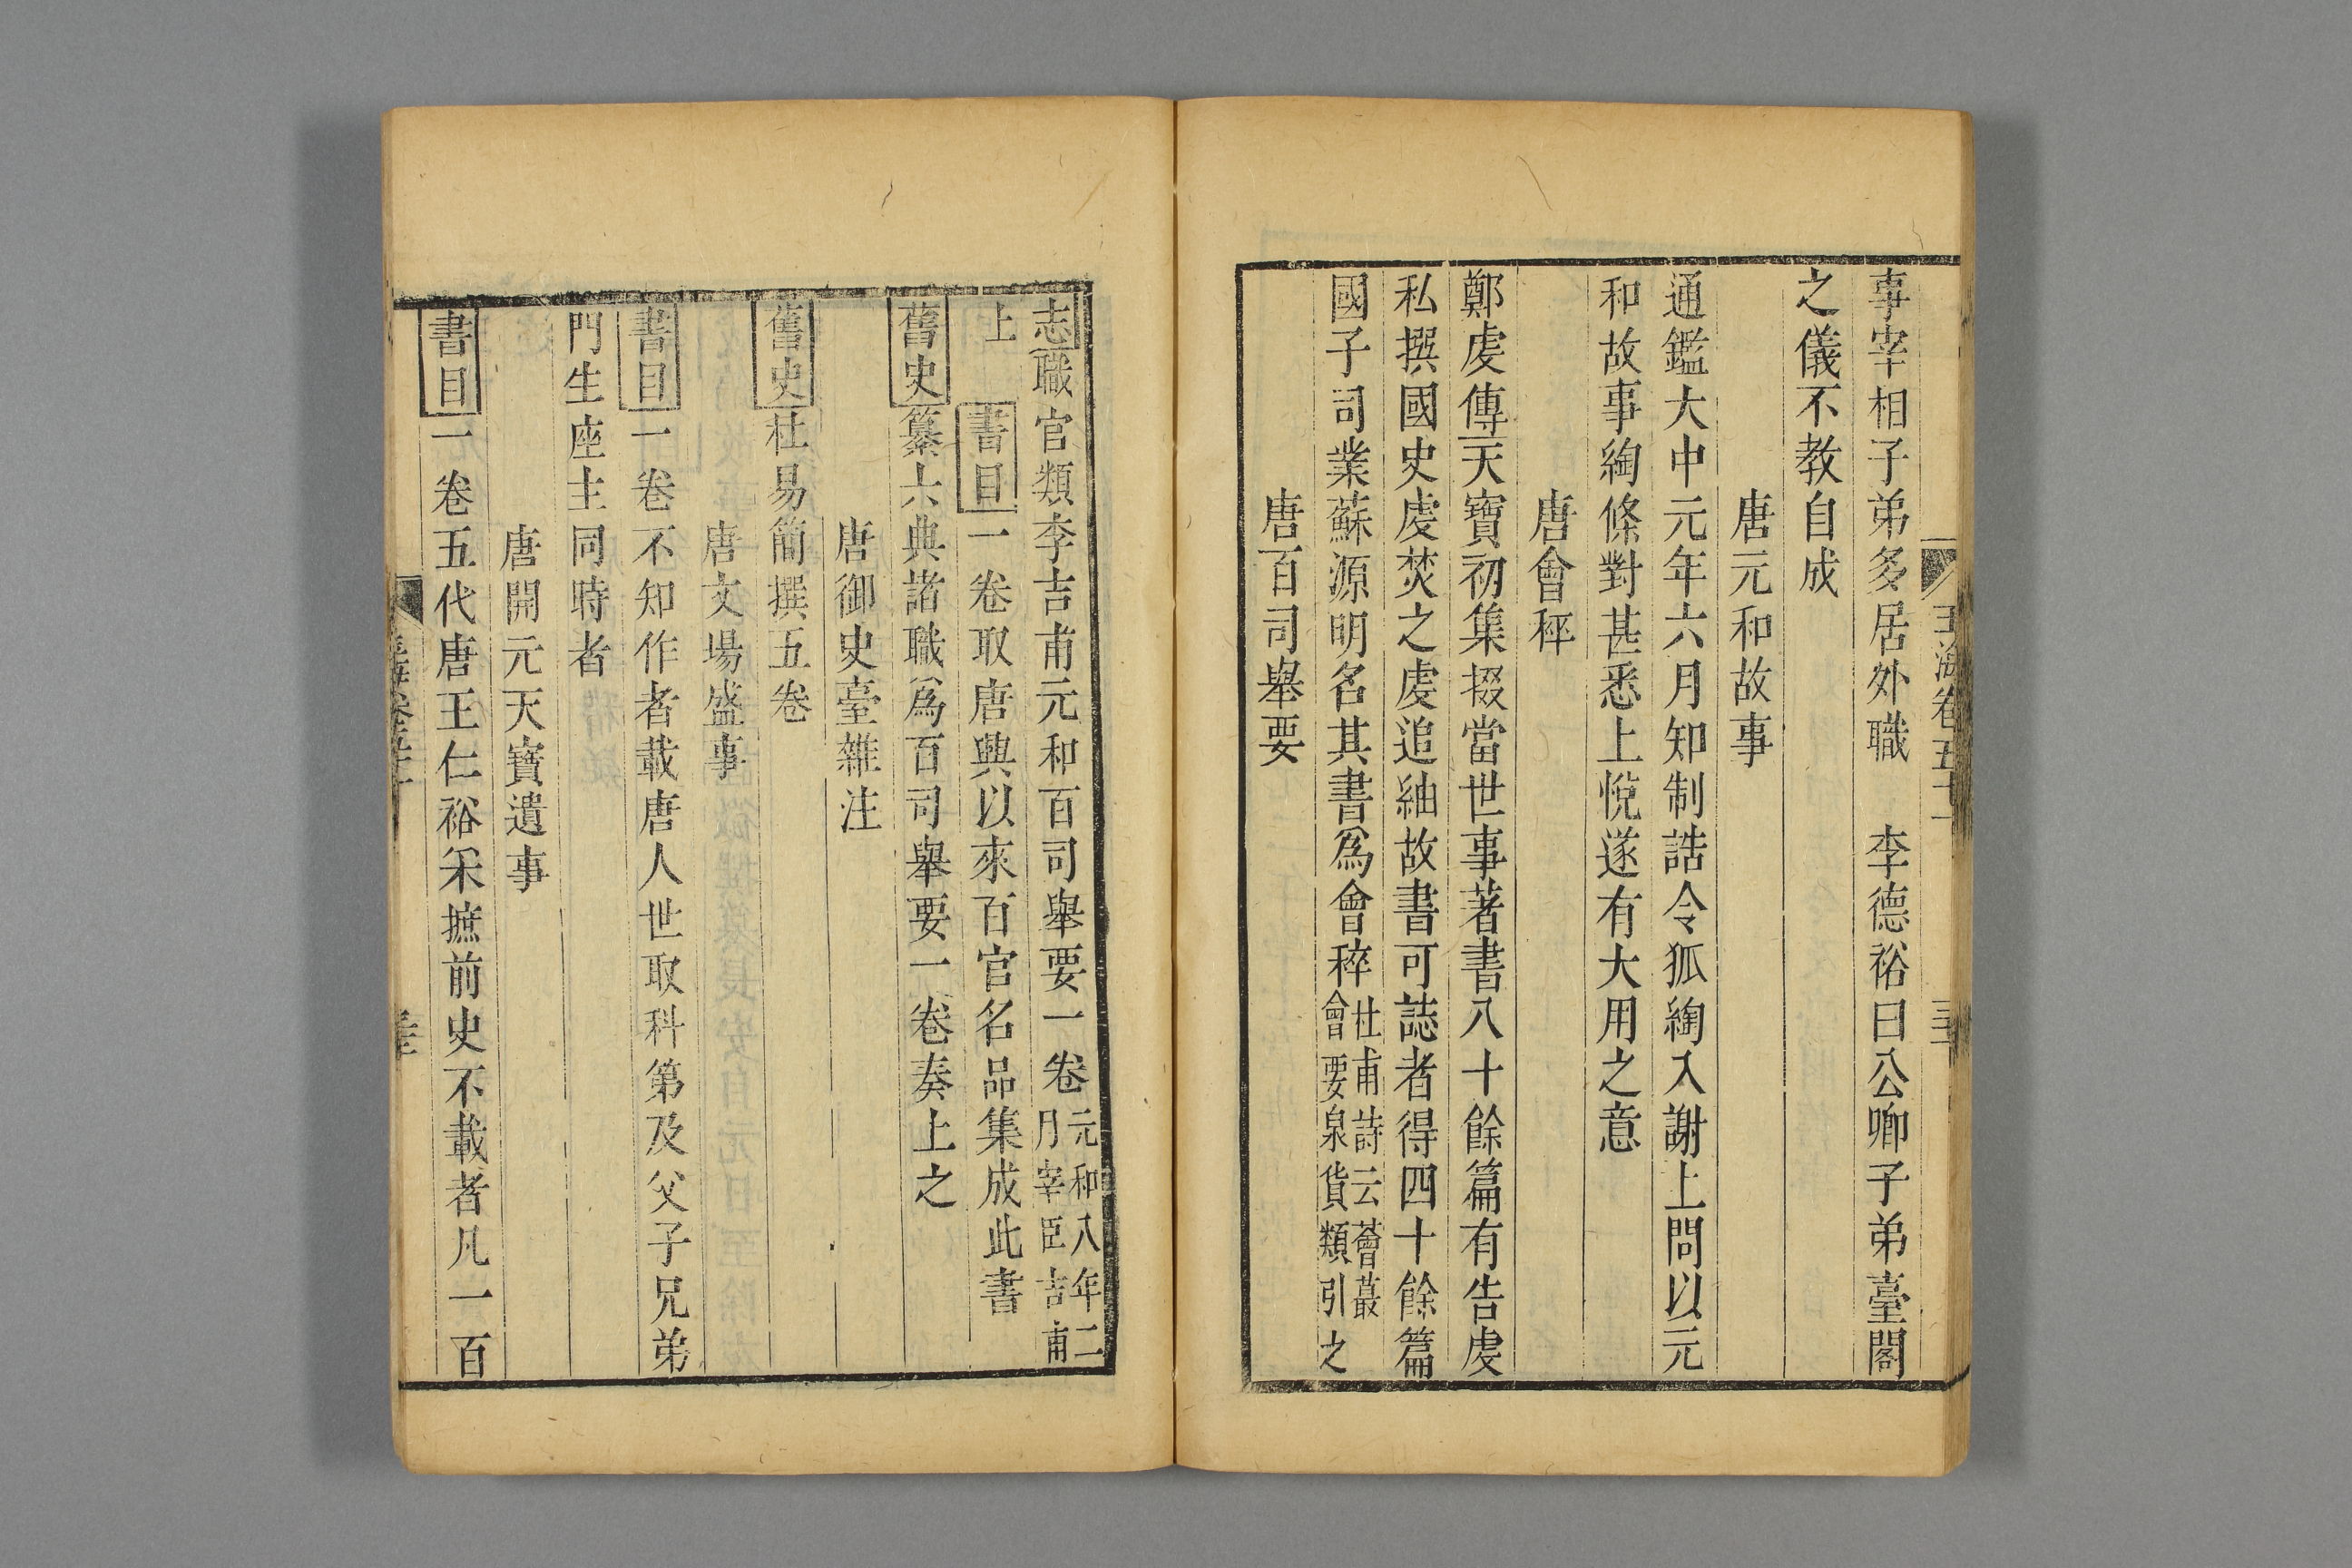 事宰相子弟多居外職 李德裕曰公卿子弟臺閣
之儀不教自成
唐元和故事
通鑑大中元年六月知制誥令狐綯入謝上問以元
和故事綯條對甚悉上悅遂有大用之意
唐會稡
鄭虔傳天寶初集掇當世事著書八十餘篇有告虔
私撰國史虔焚之虔追紬故書可誌者得四十餘篇
國子司業蘇源明名其書爲會稡杜甫詩云薈蕞會要泉貨類引之
唐百司舉要
志職官類李吉甫元和百司舉要一卷元和八年二月宰臣吉甫
上 書目一卷取唐興以來百官名品集成此書
舊史纂六典諸職爲百司舉要一卷奏上之
唐御史臺雜注
舊史杜易簡撰五卷
唐文場盛事
書目一卷不知作者載唐人世取科第及父子兄弟
門生座主同時者
唐開元天寶遺事
書目一卷五代唐王仁裕采摭前史不載者凡一百